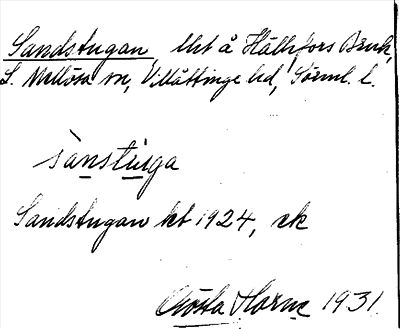 Sandstugan, lht å Hällefors Bruk,
L. Mellösa sn, Villåttinge hd, Sörml. l.
sanstuga
Sandstugan kt 1924, ek
Gösta Horne 1931